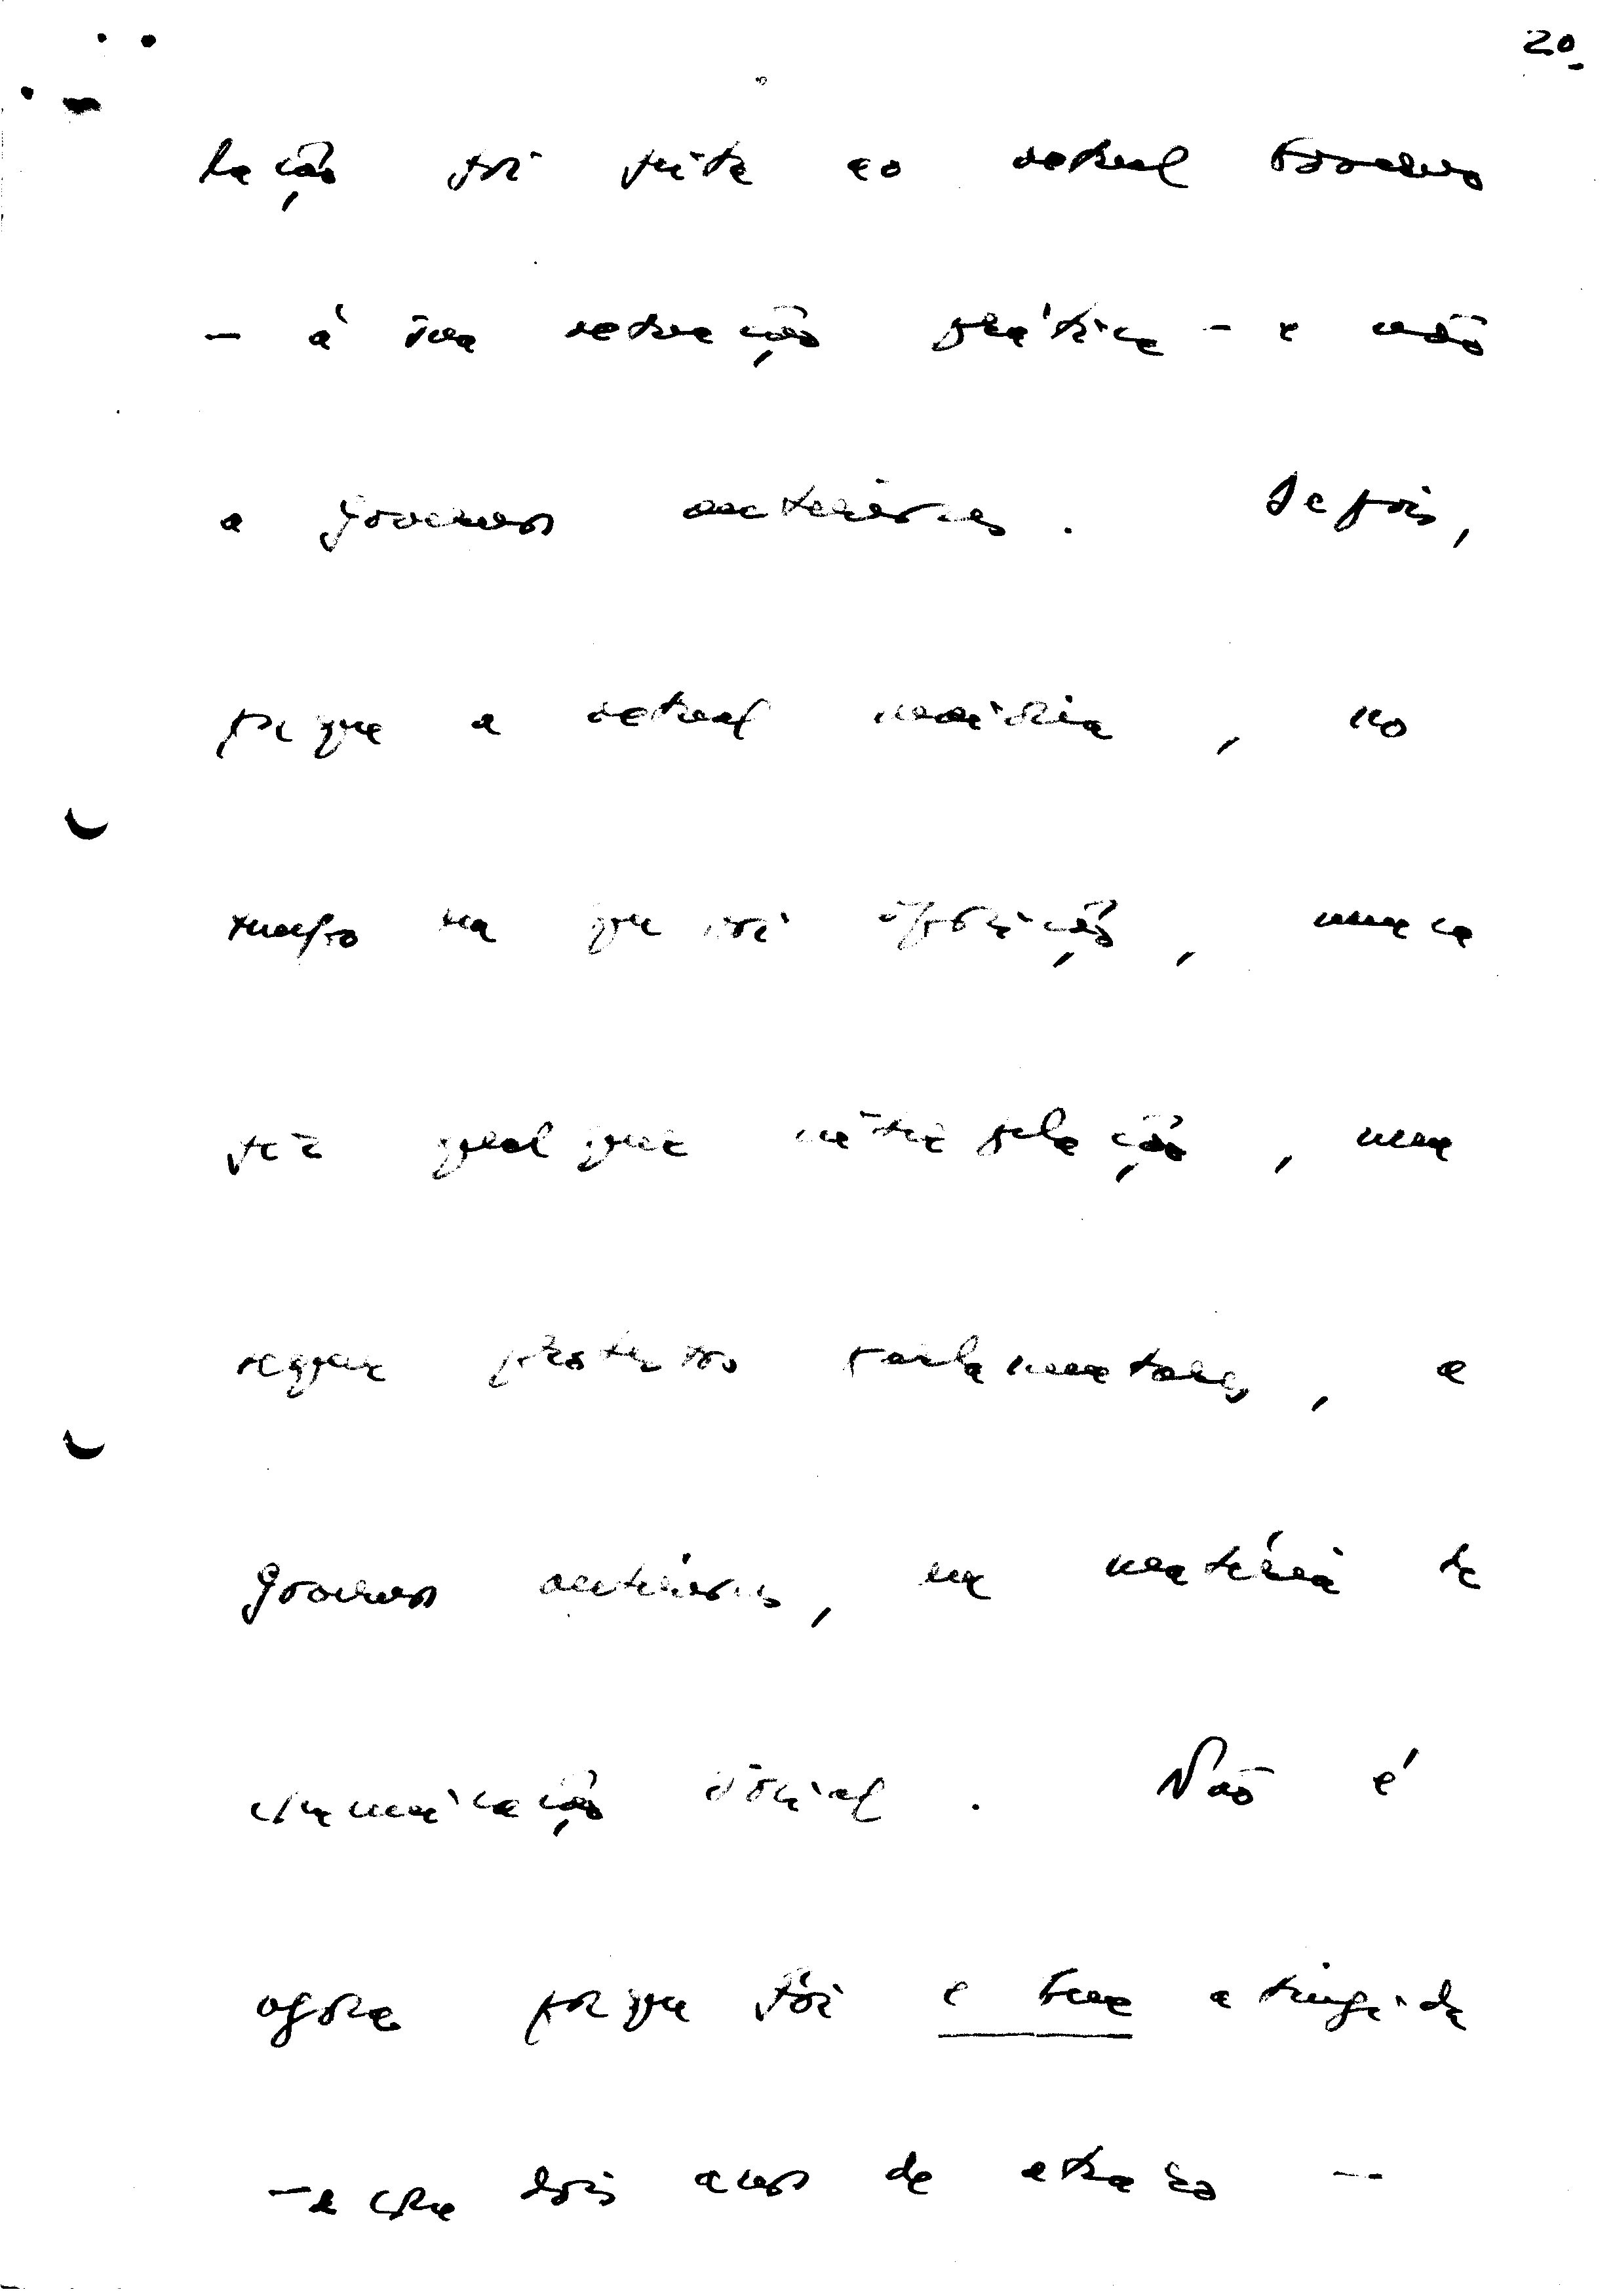 20
lação foi feita ao actual Governo
- à sua actuação prática - e não
a Governos anteriores. Depois,
porque a actual maioria, no
tempo em que foi oposição, nunca
fez qualquer interpelação, nem
sequer protestos parlamentares, a
Governos anteriores, em matéria de
comunicação social. Não é
agora porque foi e bem atingida
- e com dois anos de atraso -